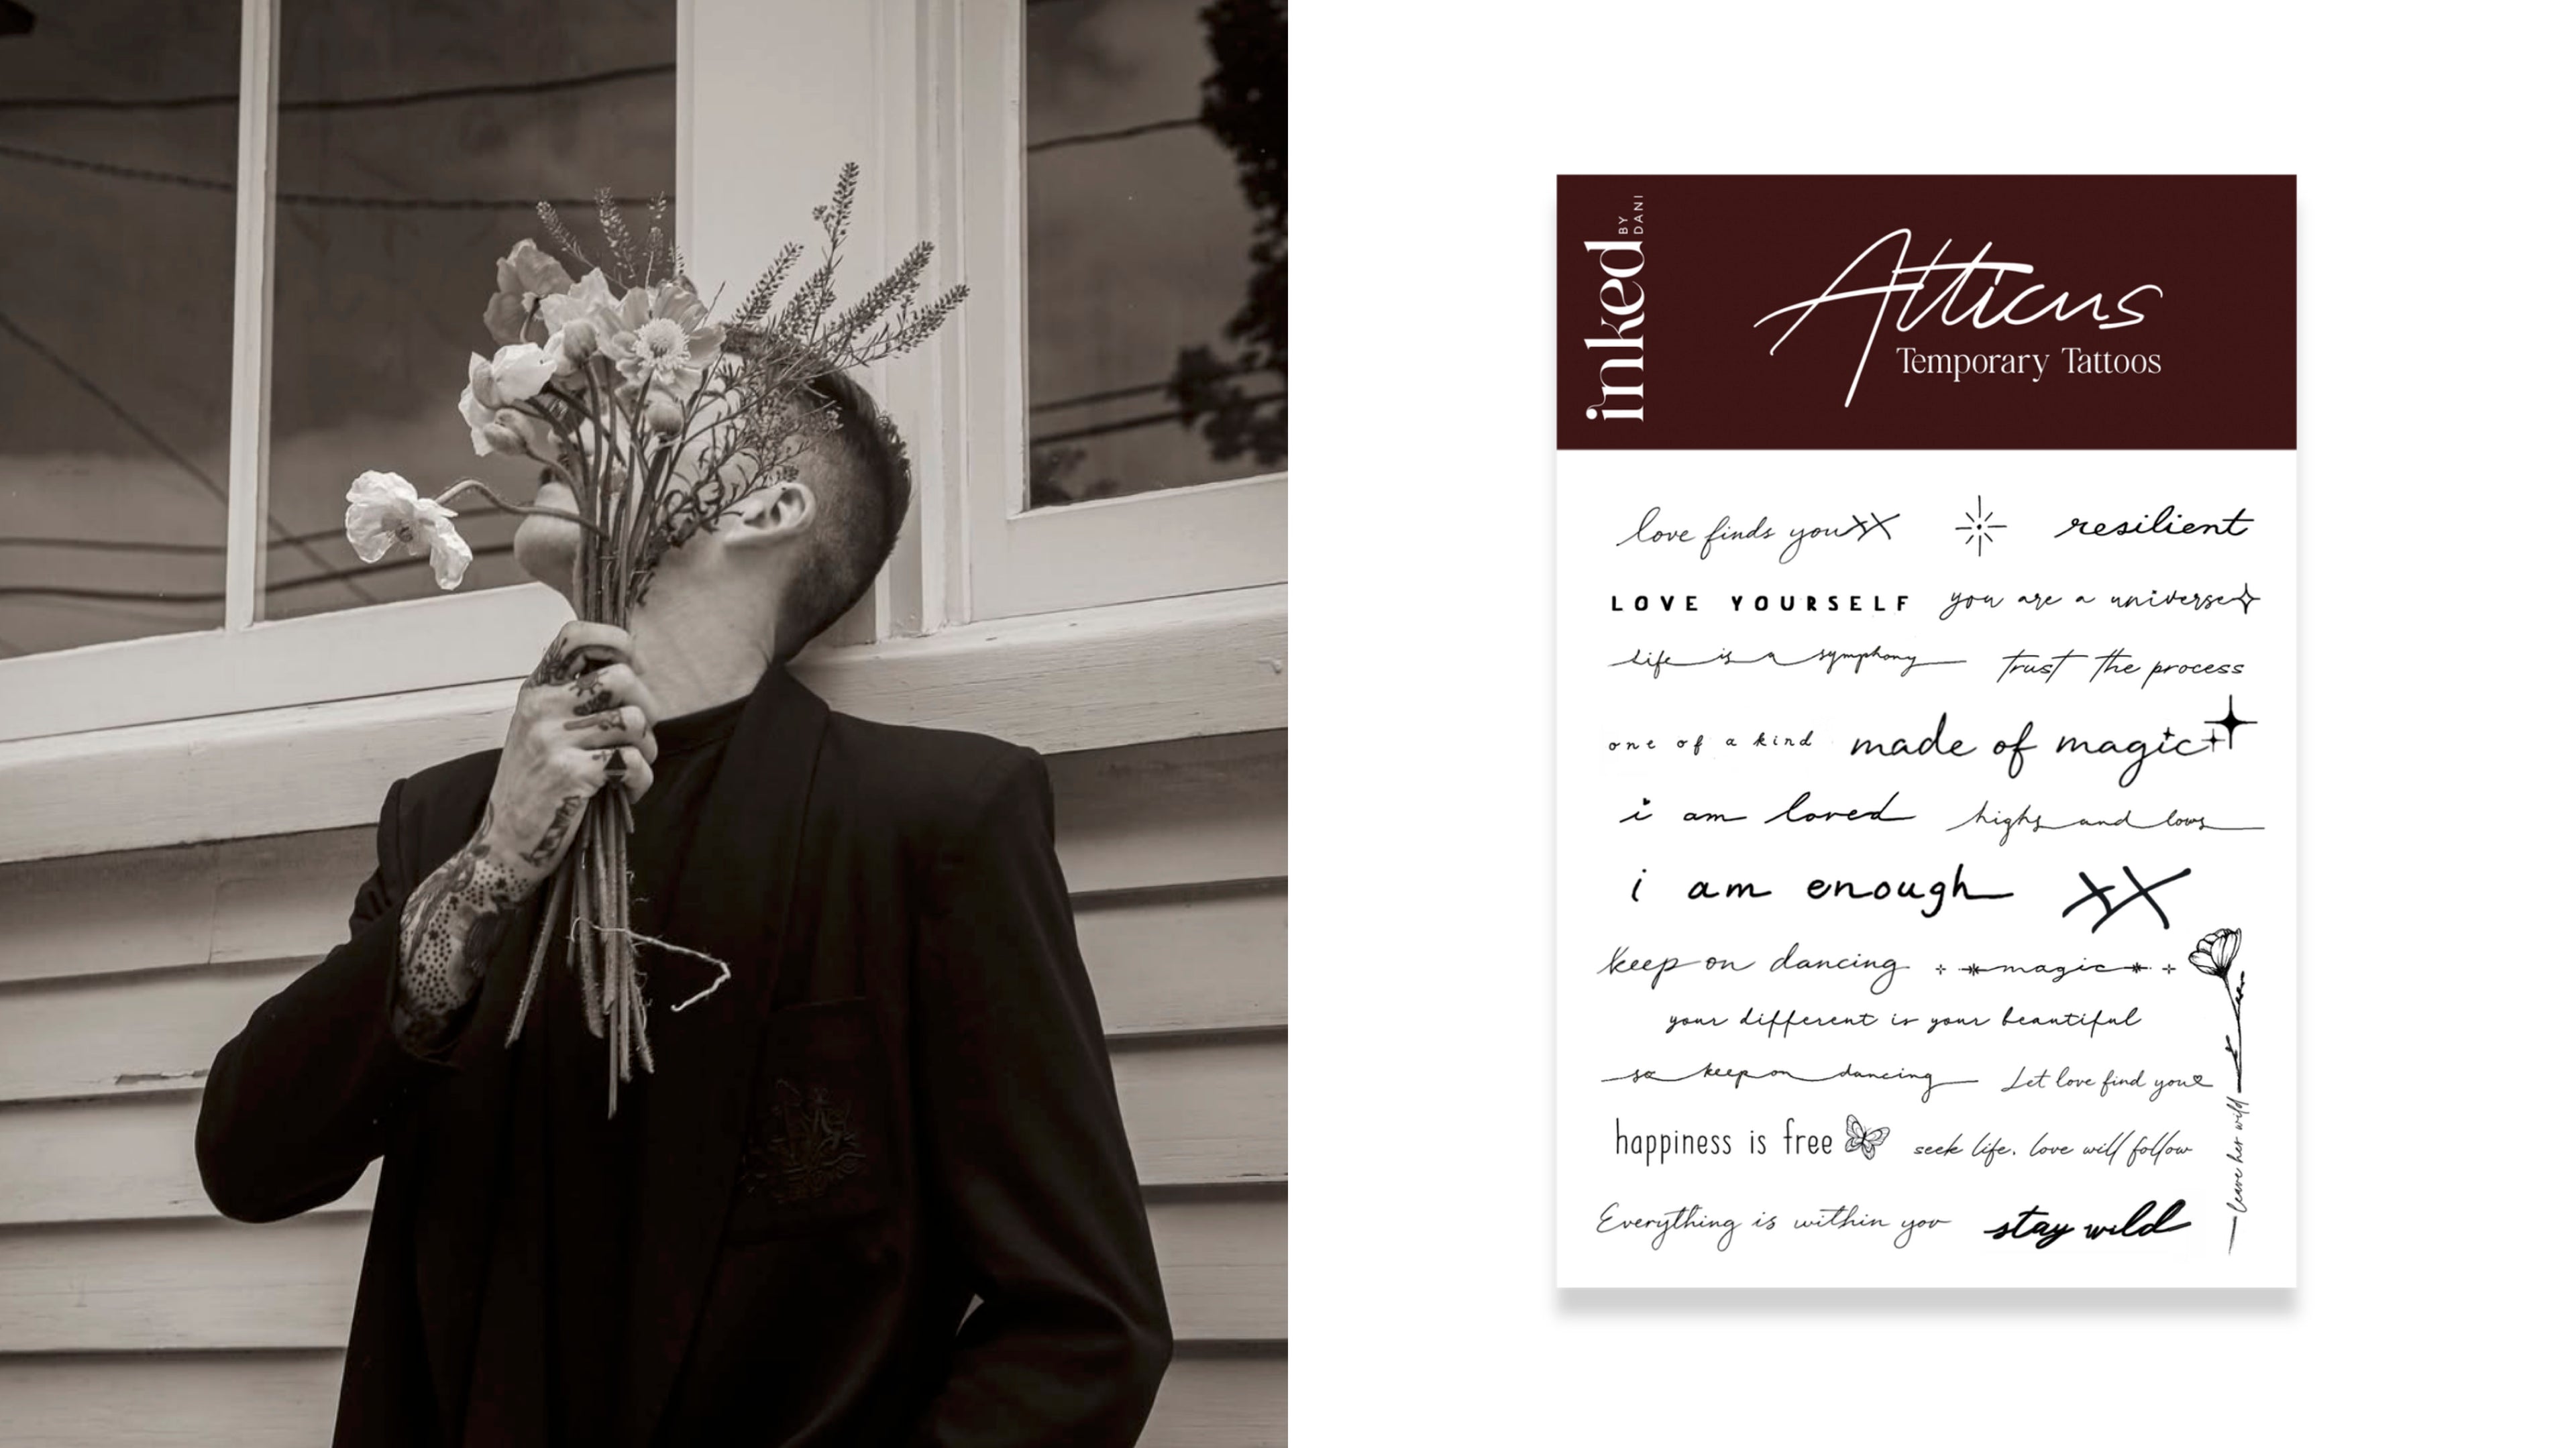 inked BY DANI
Atticus
Temporary Tattoos
love finds you XX
resilient
LOVE YOURSELF
you are a universe
Life is a symphony
trust the process
one of a kind
made of magic
i am loved
highs and lows
i am enough
XX
keep on dancing
magic
your different is your beautiful
so keep on dancing
Let love find you
happiness is free
seek life. love will follow
leave her wild
Everything is within you
stay wild